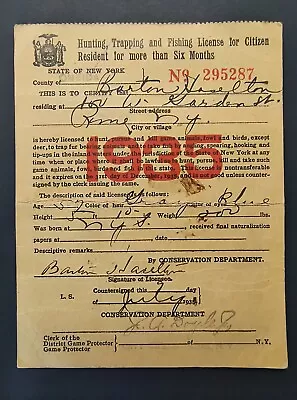 Hunting, Trapping and Fishing License for Citizen
Resident for more than Six Months
STATE OF NEW YORK
No 295287
County of
THIS IS TO CERTIFY Barton Haselton
residing at W. Garden St.
Street address
Rome N.Y.
City or village
is hereby licensed to hunt, pursue and kill game animals, fowl and birds, except
deer, to trap fur-bearing animals and to take fish by angling, spearing, hooking and
tip-ups in the inland waters under the jurisdiction of the State of New York at any
time when and place where it is lawful to hunt, pursue, and take such
game animals, fowl, birds and fish
it expires on the 31st day of December, 1935, and is not good unless countersigned
by the clerk issuing the same.
1935
The description of said licensee is as follows:
Age 57 Color of hair Gray Blue
Height 5 ft. 10 Weight 200 lbs.
Was born in N.Y.S. received final naturalization
papers at dated
Remarks
By CONSERVATION DEPARTMENT.
Barton Haselton
Signature of Licensee.
Countersigned this day
L. S. of July 1935
CONSERVATION DEPARTMENT
Clerk of the
District Game Protector
Game Protector
N.Y.